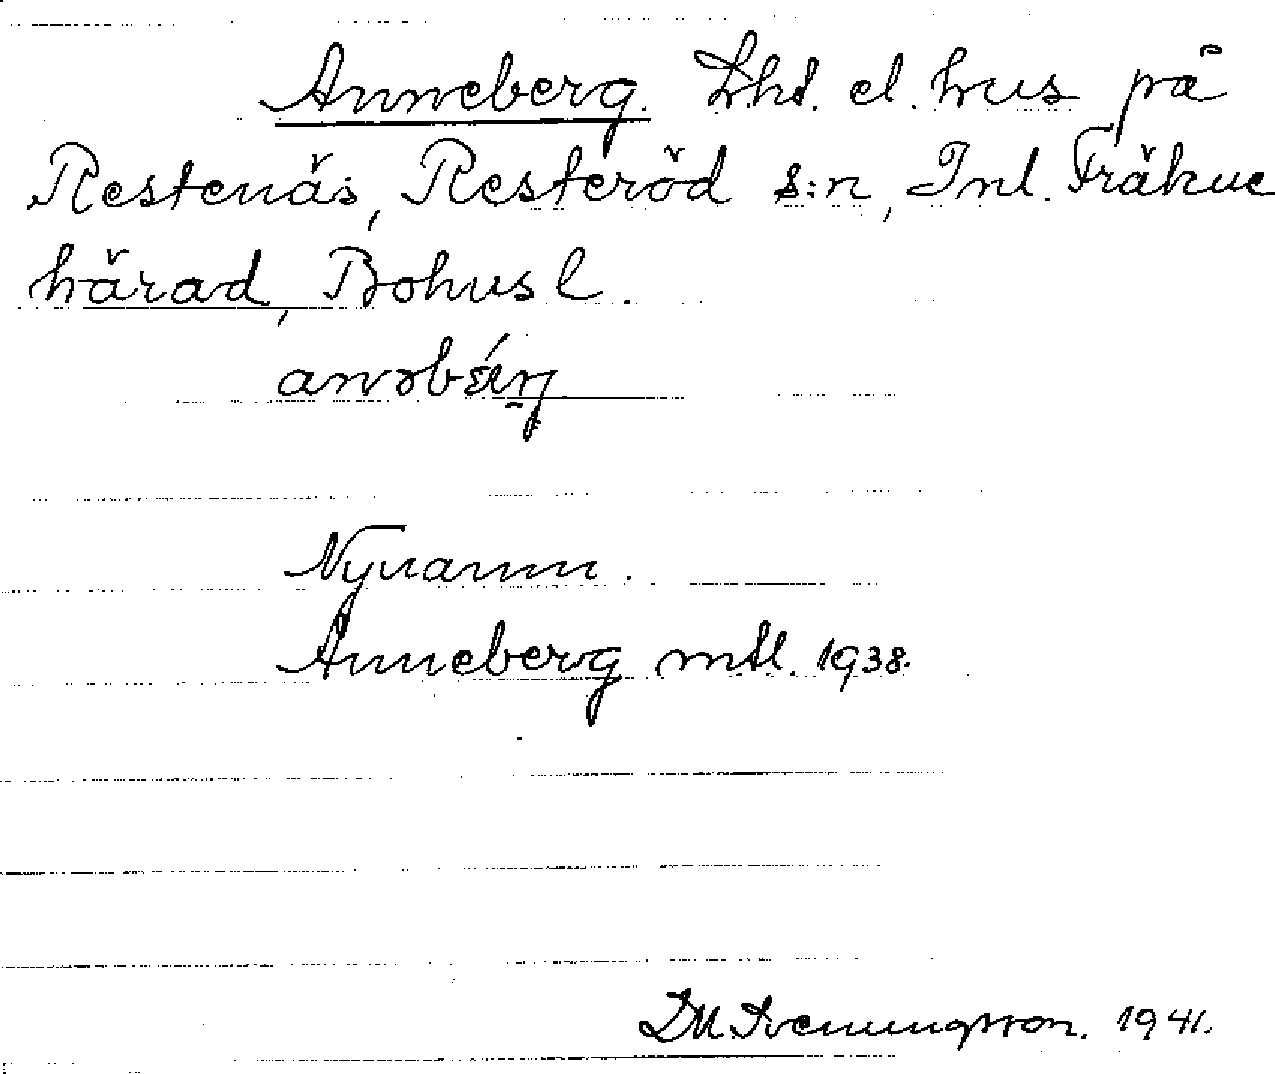 Anneberg. Lht. el. hus på
Restenäs, Resteröd s:n, Inl. Fräkne
härad, Bohusl.
Nynamn.
Anneberg mtl. 1938.
D.M. Svenningsson. 1941.